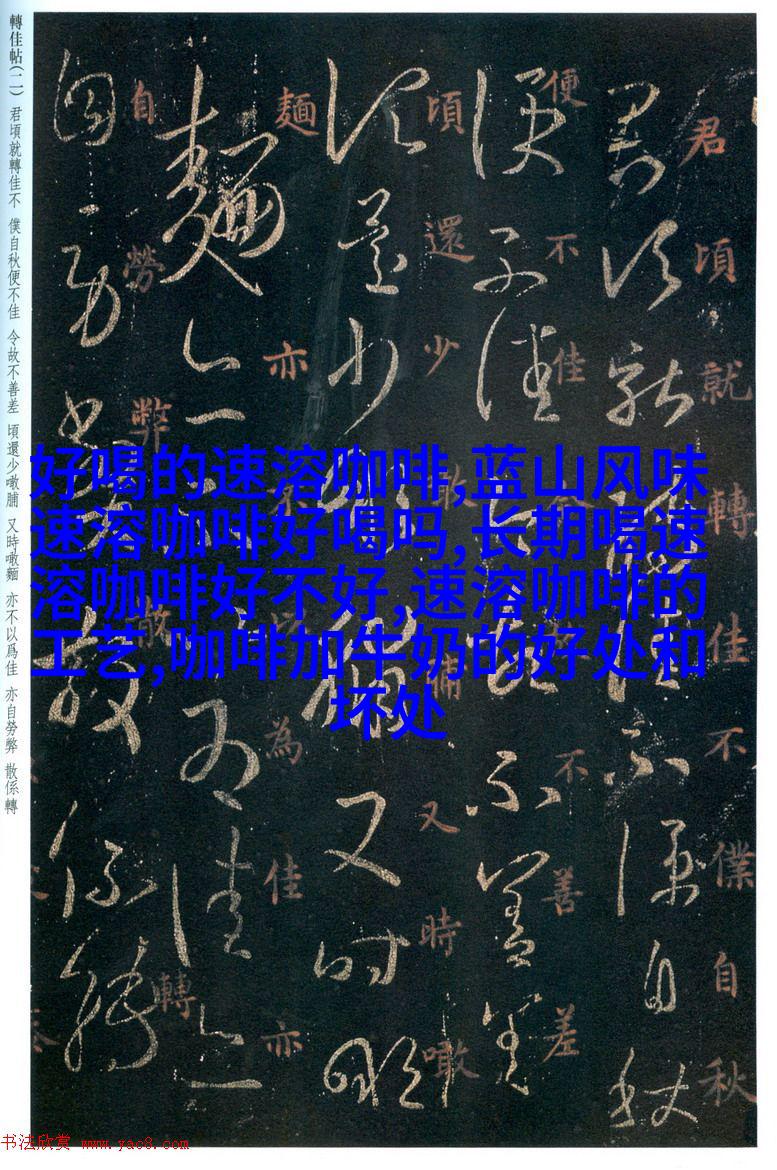 轉佳帖(二) 君頃就轉佳不 僕自秋便不佳 今故不善差 頃還少噉脯 又時噉麵 亦不以爲佳 亦自勞弊 散係轉
君頃就轉佳不僕自秋
便不佳今故不善差
頃還少噉脯又時噉
麵亦不以為佳亦
自勞弊散係轉
好喝的速溶咖啡,蓝山风味
速溶咖啡好喝吗,长期喝速
溶咖啡好不好,速溶咖啡的
工艺,咖啡加牛奶的好处和
坏处
书法欣赏 www.yac8.com